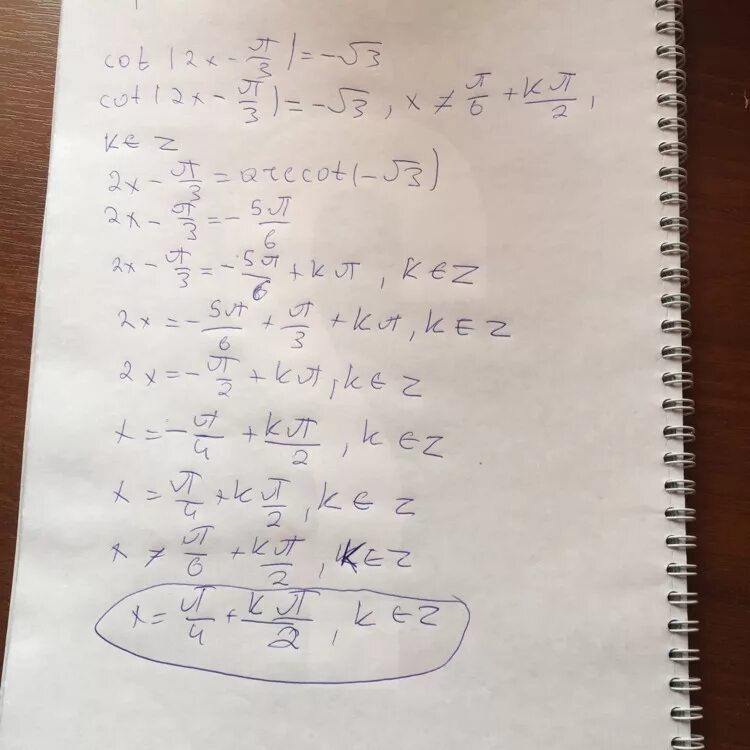 cot |2x - π/3| = -√3
cot |2x - π/3| = -√3, x ≠ π/6 + kπ/2,
k ∈ Z
2x - π/3 = arccot(-√3)
2x - π/3 = - 5π/6
2x - π/3 = - 5π/6 + kπ, k ∈ Z
2x = - 5π/6 + π/3 + kπ, k ∈ Z
2x = - π/2 + kπ, k ∈ Z
x = - π/4 + kπ/2, k ∈ Z
x = π/4 + k π/2, k ∈ Z
x ≠ π/6 + kπ/2, k ∈ Z
x = π/4 + kπ/2, k ∈ Z